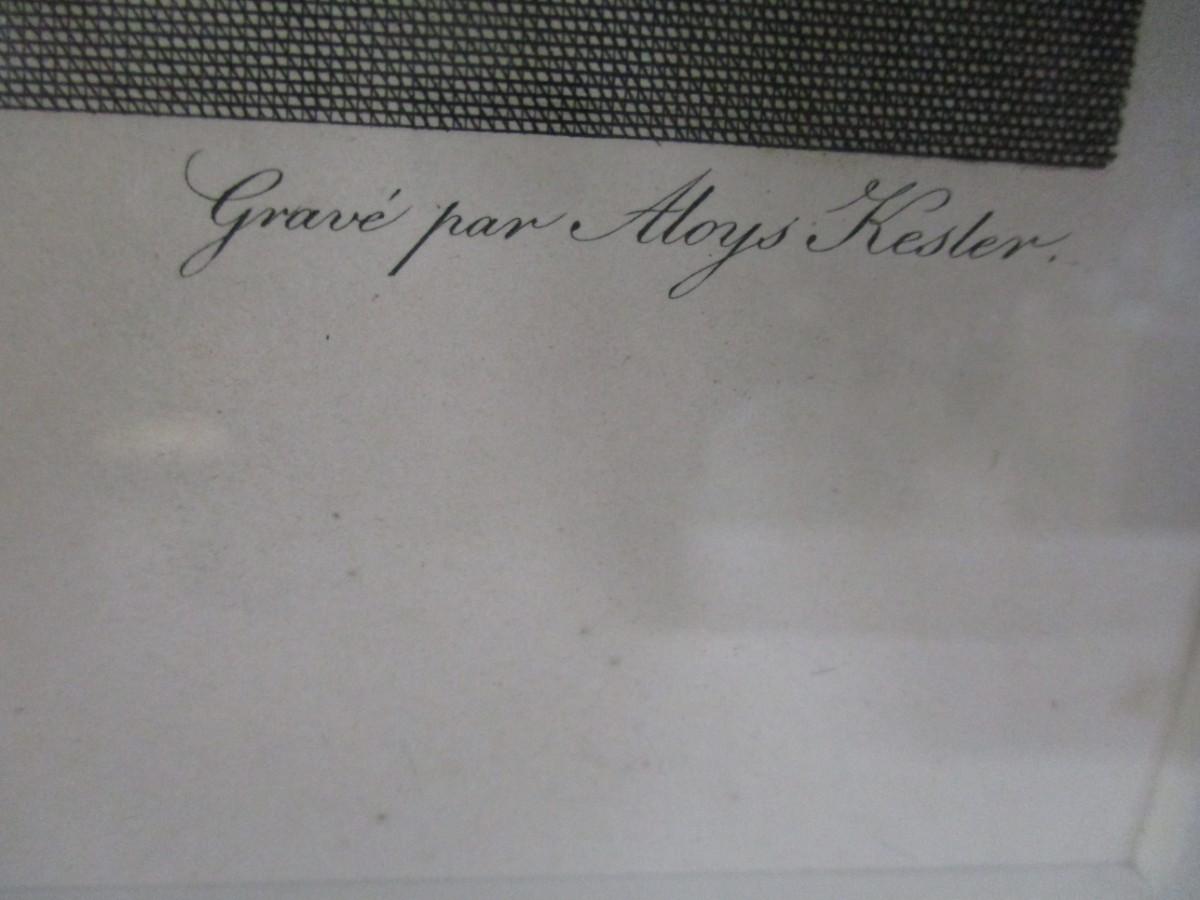 Gravé par Aloys Kesler.